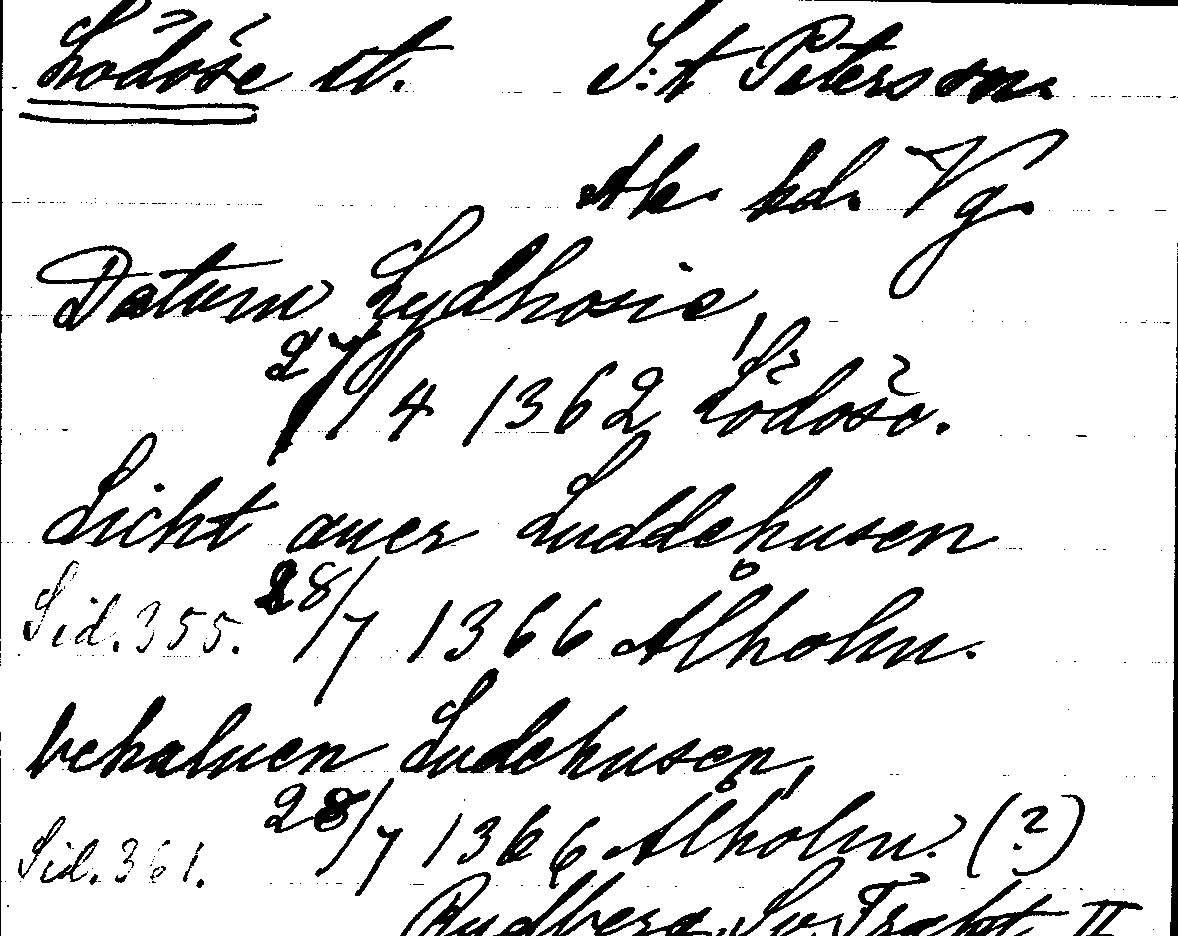 Lödöse st. S:t Peters sn.
Ale hd. Vg.
Datum Lydhosie,
27/4 1362 Lödöse.
Licht auer Luddehusen
Sid. 355. 28/7 1366 Ålholm.
behaluen Ludehusen,
Sid. 361. 28/7 1366 Ålholm. (?)
Rydberg Sv. Trakt. II